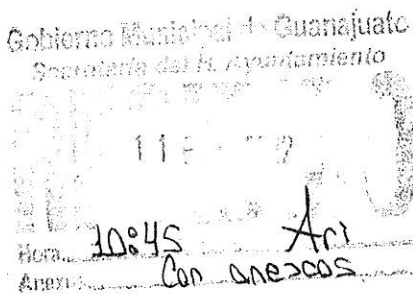 Gobierno Municipal de Guanajuato
Secretaría del H. Ayuntamiento
11
Hora 10:45 Ari
Anexo Con anexos